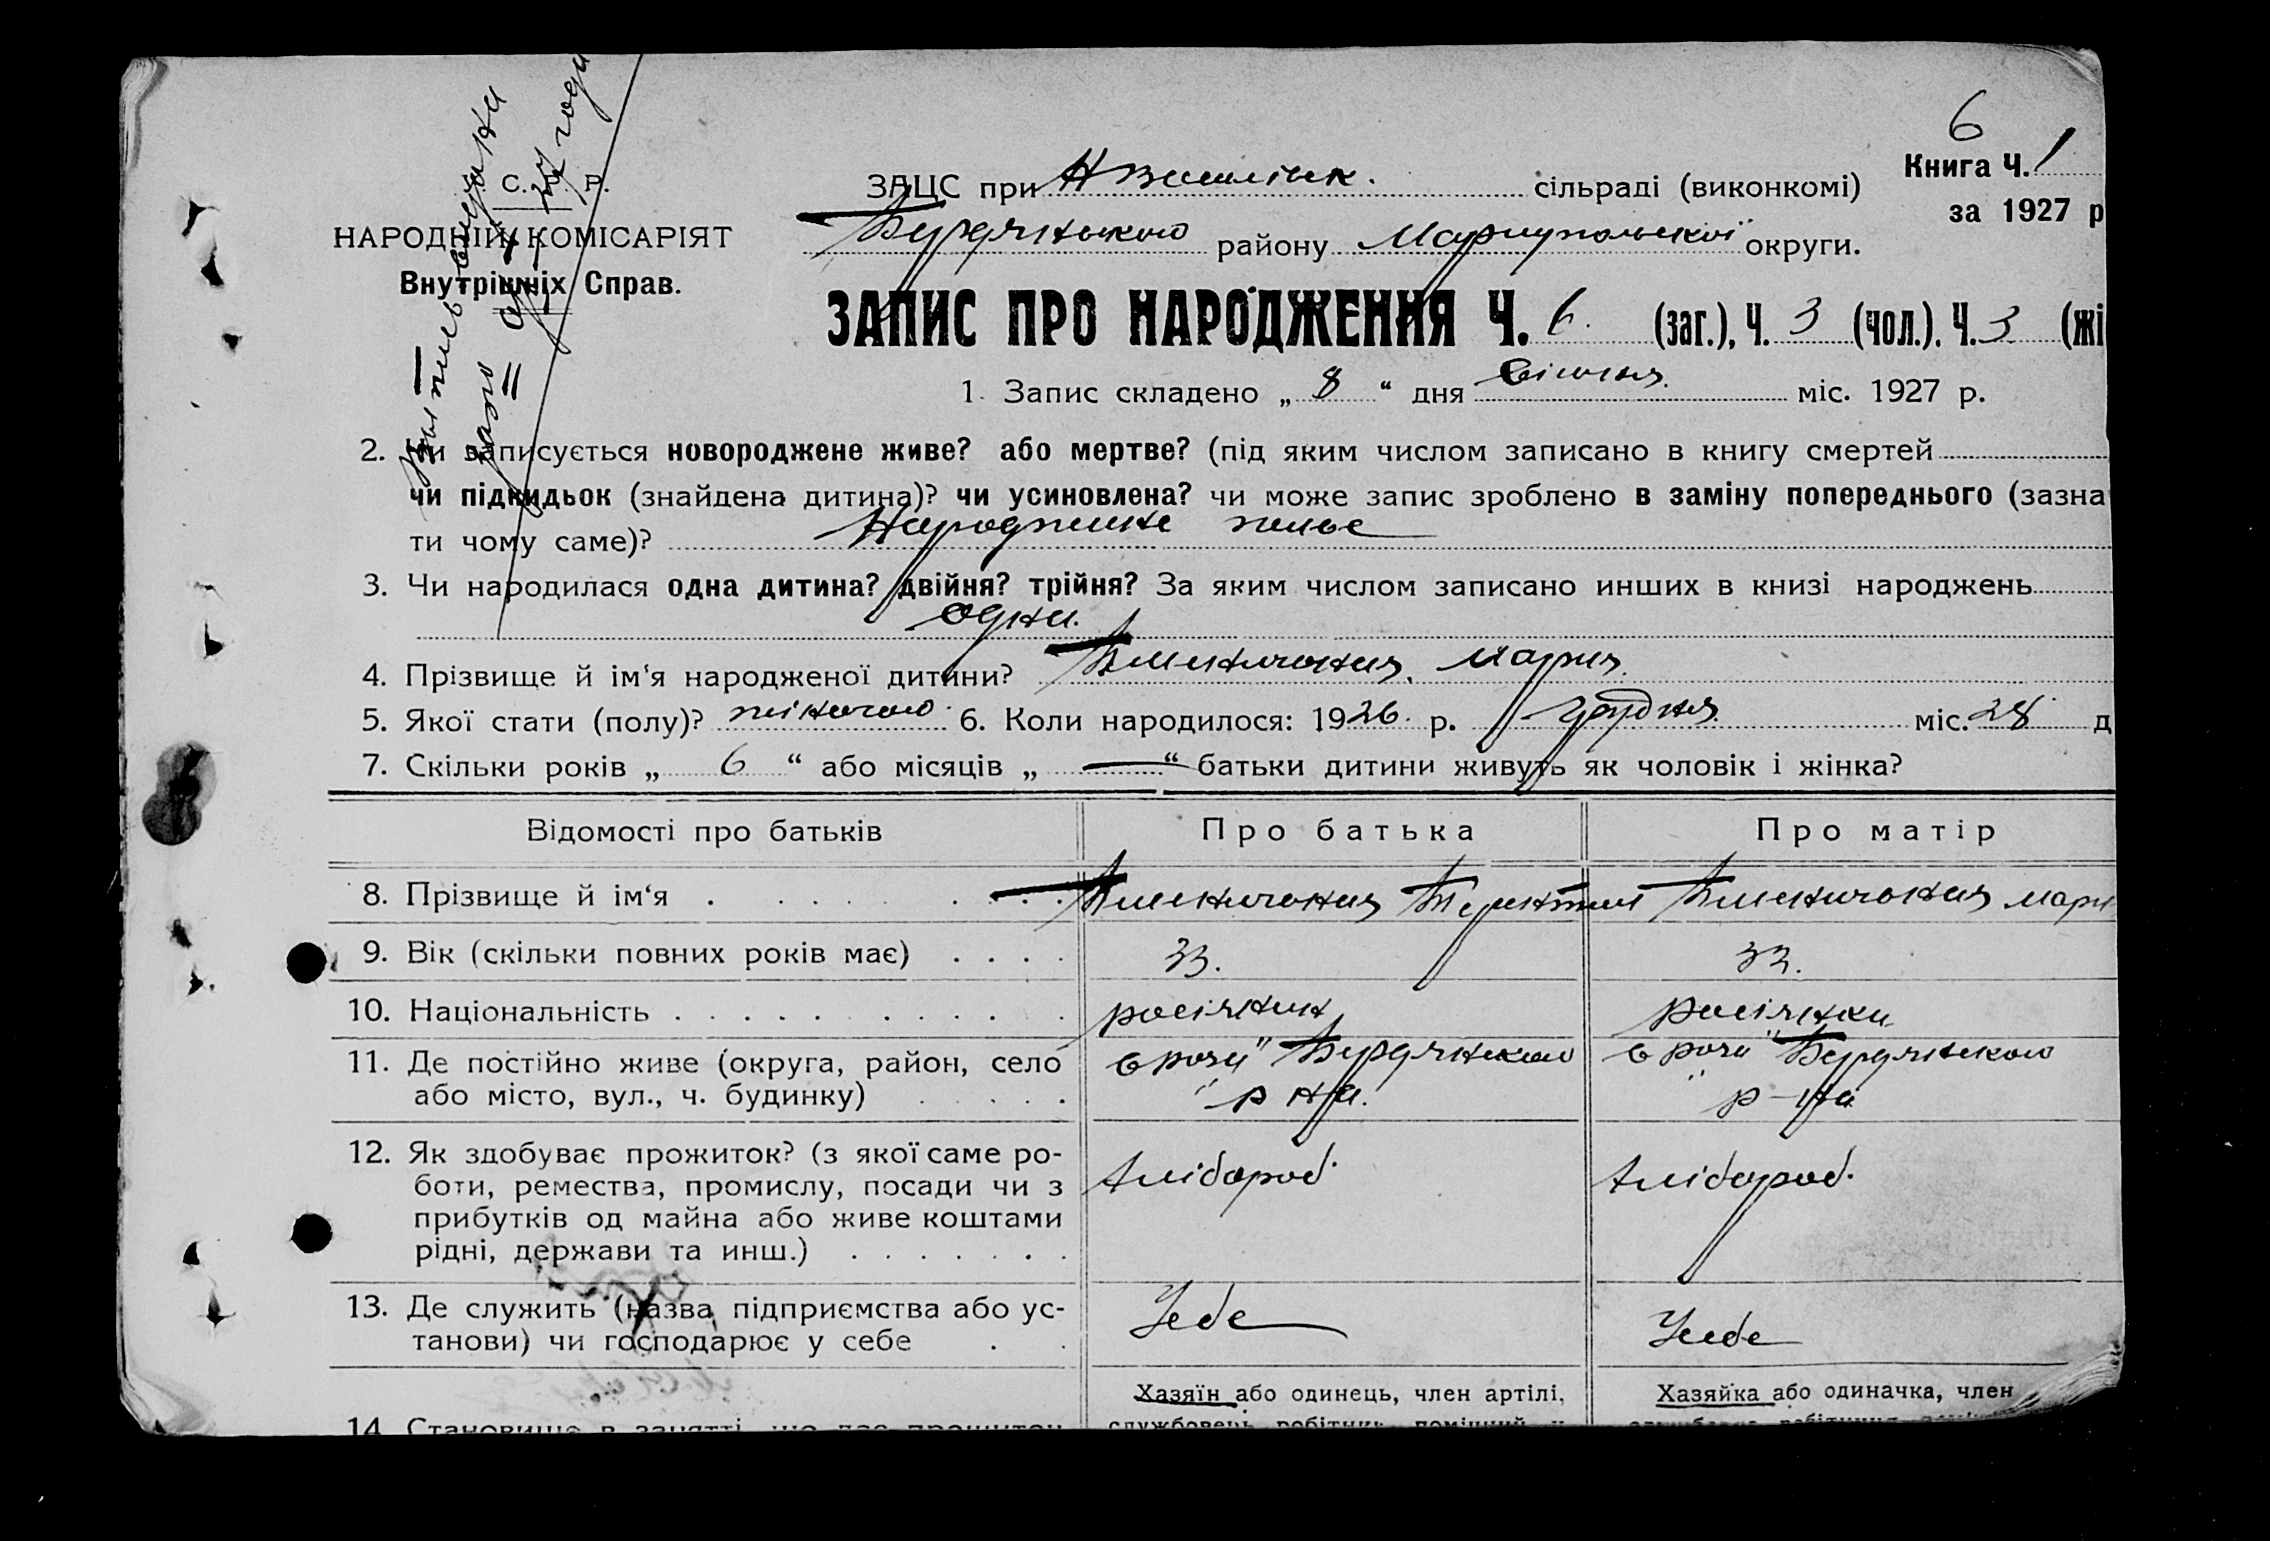 6
С. Р. Р.
НАРОДНІЙ КОМІСАРІЯТ
Внутрішніх Справ.
Книга Ч. 1
за 1927 р
ЗАЦС при сільраді (виконкомі)
Бердянського району Мариупольскої округи.
ЗАПИС ПРО НАРОДЖЕННЯ Ч. 6. (заг.), Ч. 3 (чол.). Ч. 3 (жі
1. Запис складено „ 8 “ дня Січня міс. 1927 р.
2. Чи записується новороджене живе? або мертве? (під яким числом записано в книгу смертей
чи підкидьок (знайдена дитина)? чи усиновлена? чи може запис зроблено в заміну попереднього (зазна
ти чому саме)? живе
3. Чи народилася одна дитина? двійня? трійня? За яким числом записано инших в книзі народжень
одна.
4. Прізвище й ім‘я народженої дитини? Мария.
5. Якої стати (полу)? жіночою. 6. Коли народилося: 1926. р. Грудня міс. 28 д
7. Скільки років „ 6 “ або місяців „ — “ батьки дитини живуть як чоловік і жінка?
Відомості про батьків Про батька Про матір
8. Прізвище й ім‘я . . . . . Терентий Мари
9. Вік (скільки повних років має) . . . . 33. 32.
10. Національність . . . . . . . . . . росіянин росіянка
11. Де постійно живе (округа, район, село Бердянского Бердянского
або місто, вул., ч. будинку) . . . . . р на. р-на
12. Як здобуває прожиток? (з якої саме ро-
боти, ремества, промислу, посади чи з Хлібороб. Хлібороб.
прибутків од майна або живе коштами
рідні, держави та инш.) . . . . . . .
13. Де служить (назва підприємства або ус- Себе Себе
танови) чи господарює у себе . .
Хазяїн або одинець, член артілі, Хазяйка або одиначка, член
14. Становище в занятті, що дає прожиток службовець, робітник, помічний у